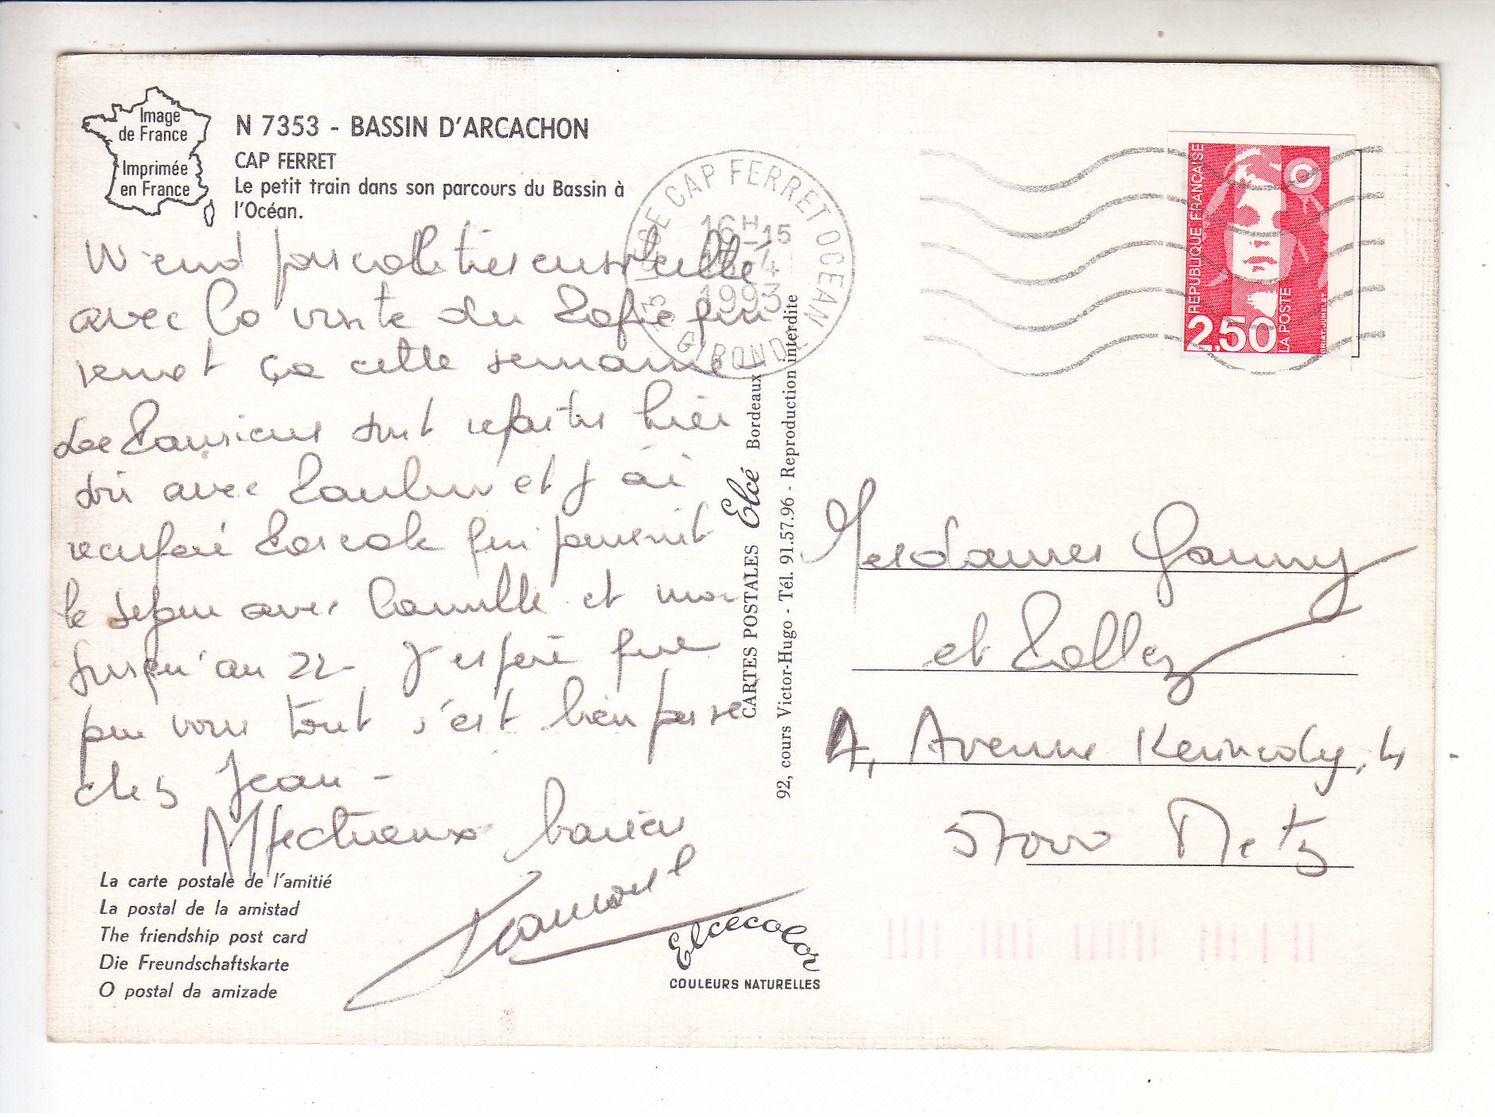 Image
de France
Imprimée
en France
N 7353 - BASSIN D'ARCACHON
CAP FERRET
Le petit train dans son parcours du Bassin à
l'Océan.
W end pascal très ensoleillé
avec la visite du
cette semaine
Les sont repartis hier
soir avec et j'ai
récupéré Pascale qui poursuit
le séjour avec Camille et moi
jusqu'au 22 - J'espère que
pour vous tout s'est bien passé
chez Jean -
Affectueux baisers
La carte postale de l'amitié
La postal de la amistad
The friendship post card
Die Freundschaftskarte
O postal da amizade
Elcécolor
COULEURS NATURELLES
CARTES POSTALES Elcé Bordeaux
92, cours Victor-Hugo - Tél. 91.57.96 - Reproduction interdite
LEGE CAP FERRET OCEAN
16H15
1993
GIRONDE
REPUBLIQUE FRANÇAISE
2,50
LA POSTE
Mesdames
et
4, Avenue Kennedy, 4
57000 Metz